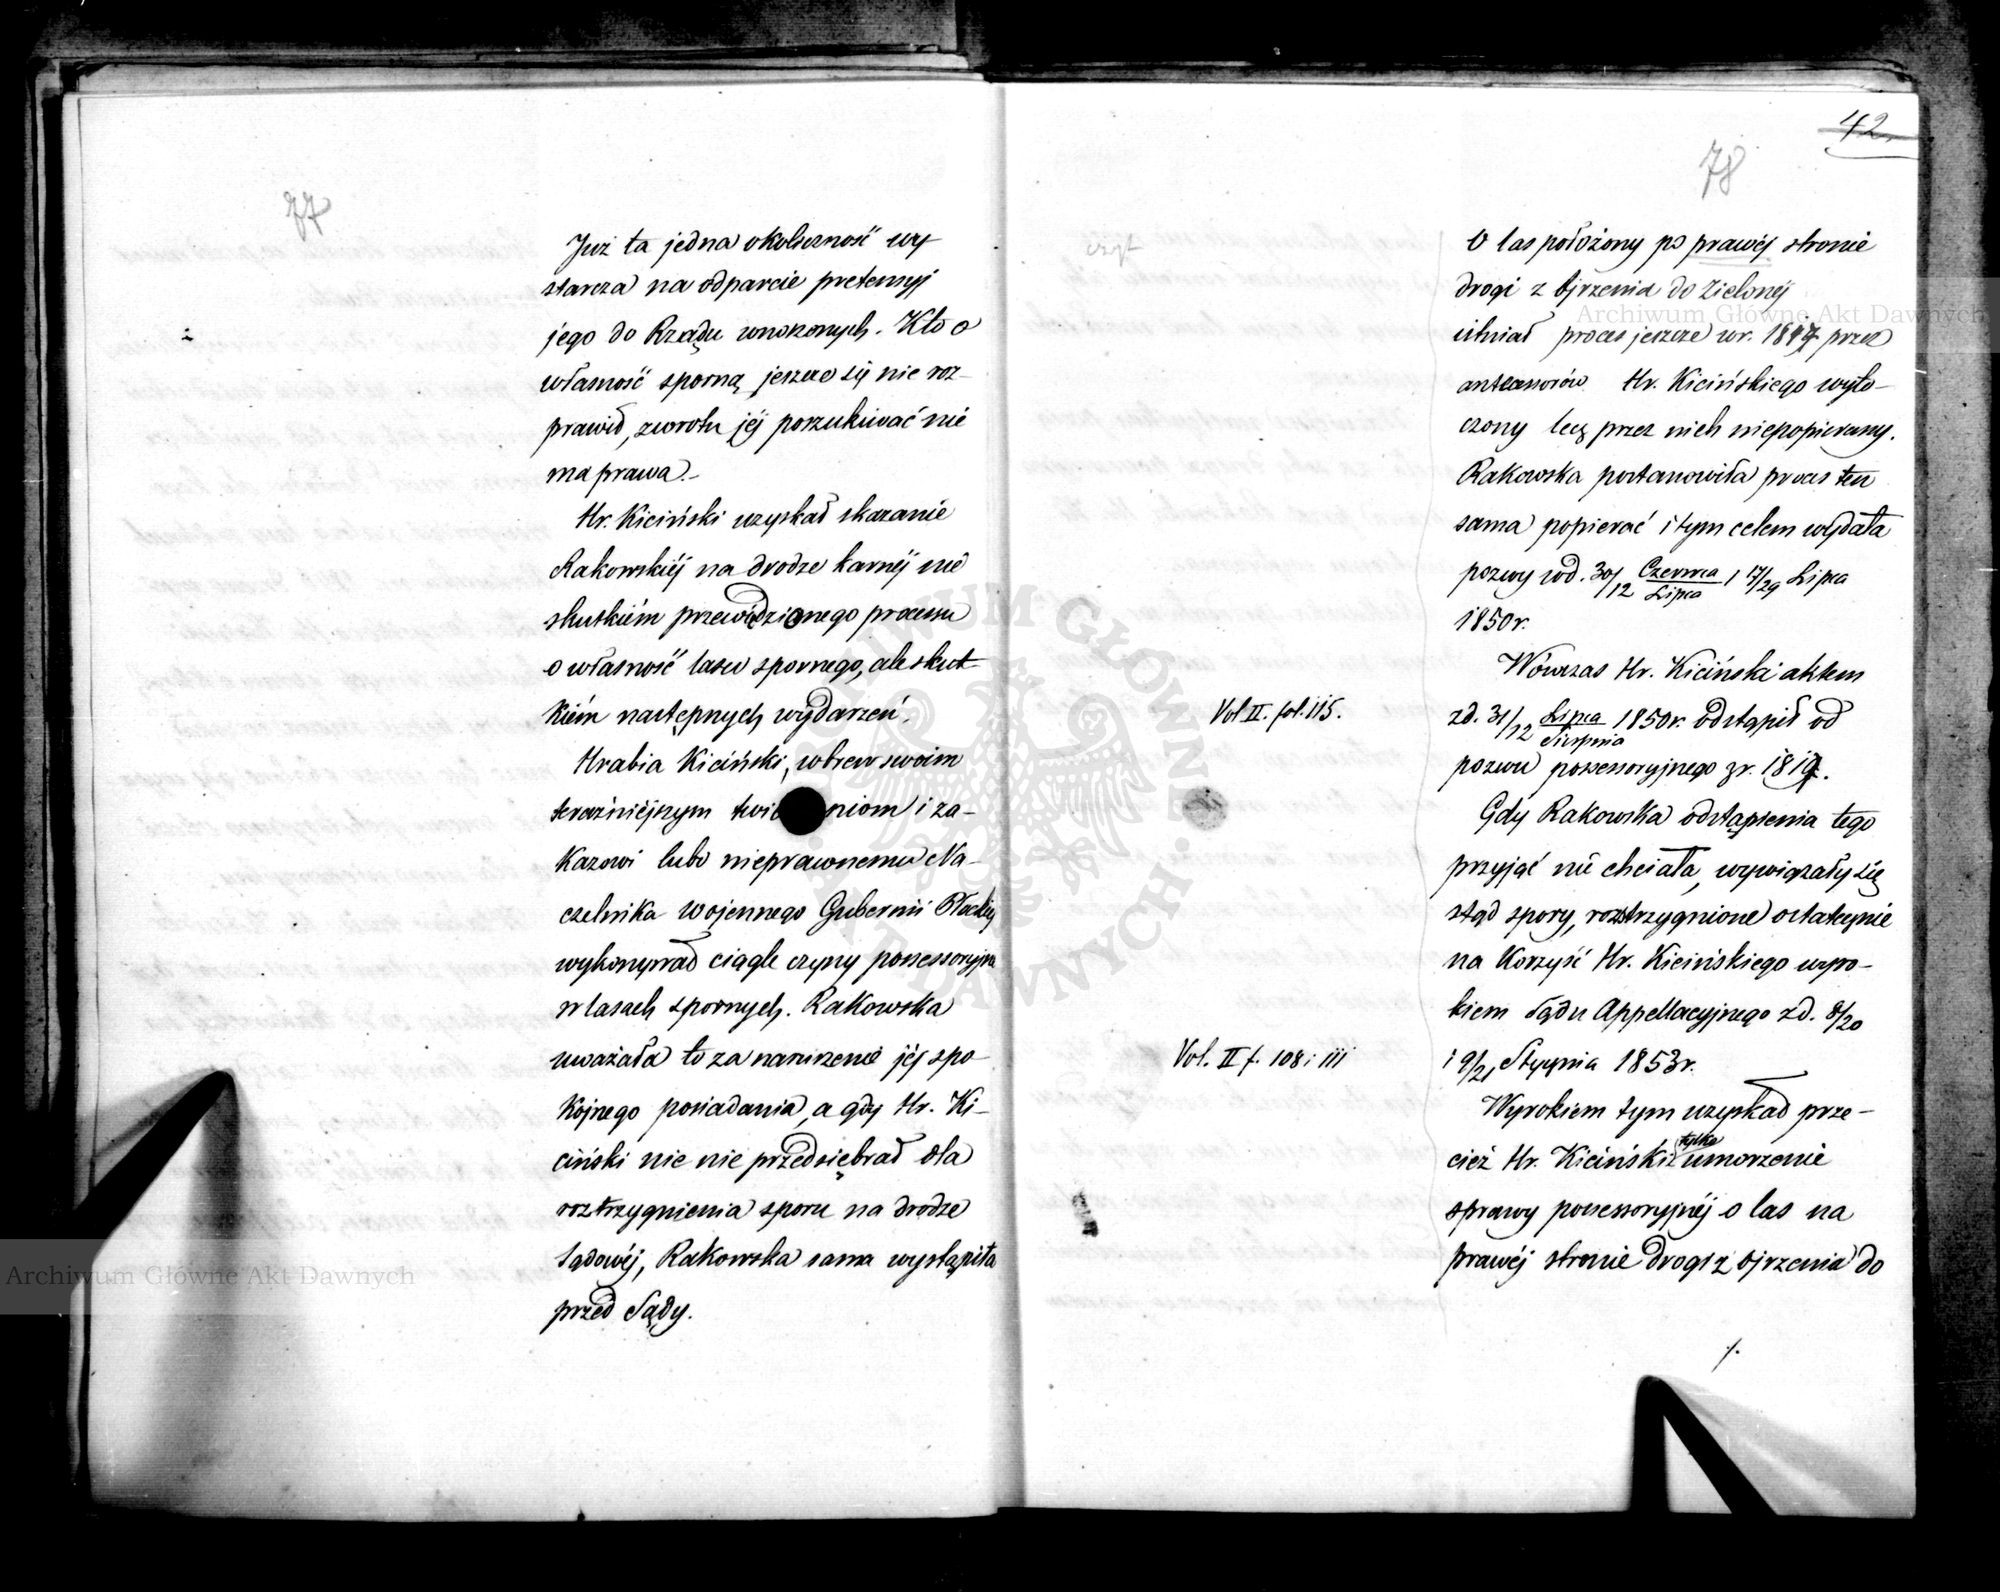 77
Już ta jedna okoliczność wy
starcza na odparcie pretensyj
jego do Rządu wnoszonych. Kto o
własność sporną jeszcze się nie roz-
prawił, zwrotu jéj poszukiwać nie
ma prawa.-
Hr. Kiciński uzyskał skazanie
Rakowskiéj na drodze karnéj nie
skutkiém przewiedzionego processu
o własność lasu spornego, ale skut-
kiém następnych wydarzeń.
Hrabia Kiciński, wbrew swoim
teraźniejszym twie niom i za-
kazowi lubo nieprawnemu Na-
czelnika Wojennego Gubernii Płockiéj
wykonywał ciągle czyny possessoryjne
w lasach spornych. Rakowska
uważała to za naruszenie jéj spo-
kojnego posiadania, a gdy Hr. Ki-
ciński nic nie przedsiębrał dla
roztrzygnienia sporu na drodze
Sądowéj, Rakowska sama wystąpiła
przed Sądy.
42
78
czyt
O las położony po prawéj stronie
drogi z Ojrzenia do Zielonéj
istniał proces jeszcze w r. 1847 przez
antecessorów Hr. Kicińskiego wyto-
czony lecz przez nich niepopierany.
Rakowska postanowiła proces ten
sama popierać i tym celem wydała
pozwy w d. 30/12 Czerwca/Lipca i 17/29 Lipca
1850 r.
Wówczas Hr. Kiciński aktem
Vol II. fol. 115.
z d. 31/12 Lipca/Sierpnia 1850 r. odstąpił od
pozwu possessoryjnego z r. 1819.
Gdy Rakowska odstąpienia tego
przyjąć nie chciała, wywiązały się
stąd spory, rozstrzygnione ostatecznie
na korzyść Hr. Kicińskiego wyro-
kiem Sądu Appellacyjnego z d. 8/20
Vol. II f. 108 i 111
i 9/21 Stycznia 1853 r.
Wyrokiem tym uzyskał prze-
cież Hr. Kiciński tylko umorzenie
sprawy possessoryjnéj o las na
prawéj stronie drogi z Ojrzenia do
./.
Archiwum Główne Akt Dawnych
Archiwum Główne Akt Dawnych
ARCHIWUM GŁÓWNE AKT DAWNYCH